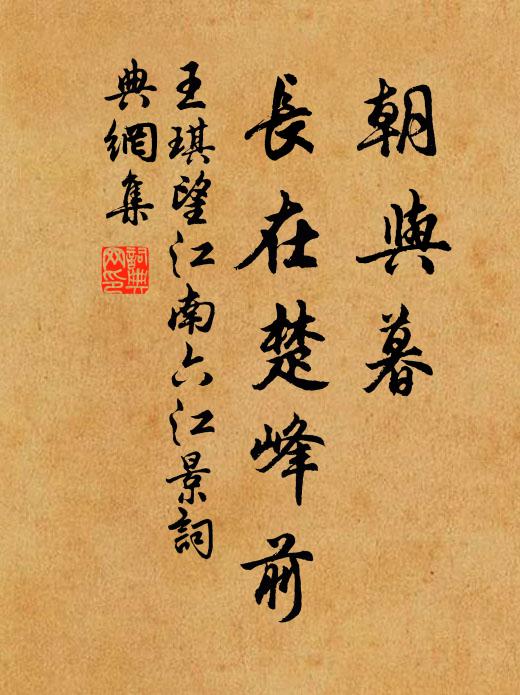 朝與暮
長在楚峰前
王琪望江南六江景詞
典網集
詞典
网印